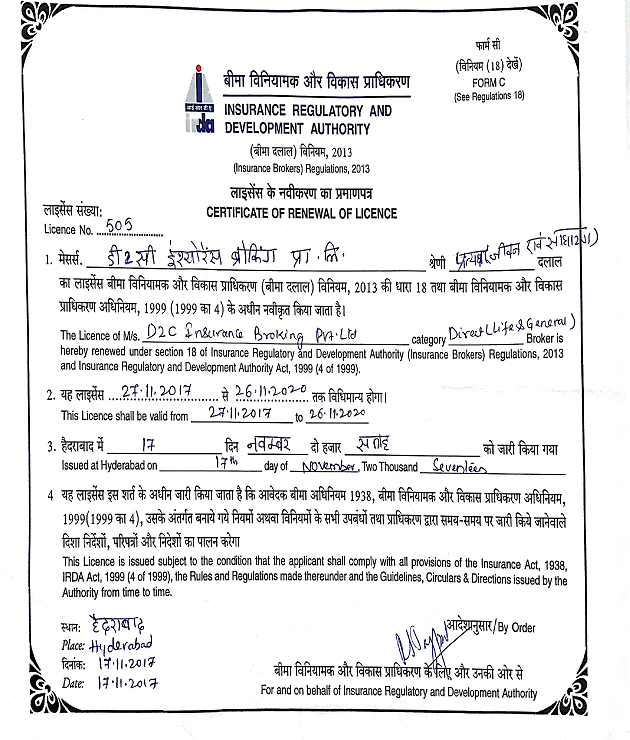 फार्म सी
(विनियम (18) देखें)
FORM C
(See Regulations 18)
बीमा विनियामक और विकास प्राधिकरण
आई आर डी ए
irda
INSURANCE REGULATORY AND
DEVELOPMENT AUTHORITY
(बीमा दलाल) विनियम, 2013
(Insurance Brokers) Regulations, 2013
लाइसेंस के नवीकरण का प्रमाणपत्र
CERTIFICATE OF RENEWAL OF LICENCE
लाइसेंस संख्या:
Licence No. 505
1. मेसर्स. डी2सी इंश्योरेंस ब्रोकिंग प्रा. लि. श्रेणी प्रत्यक्ष (जीवन एवं साधारण) दलाल
का लाइसेंस बीमा विनियामक और विकास प्राधिकरण (बीमा दलाल) विनियम, 2013 की धारा 18 तथा बीमा विनियामक और विकास
प्राधिकरण अधिनियम, 1999 (1999 का 4) के अधीन नवीकृत किया जाता है।
The Licence of M/s. D2C Insurance Broking Pvt. Ltd category Direct (Life & General) Broker is
hereby renewed under section 18 of Insurance Regulatory and Development Authority (Insurance Brokers) Regulations, 2013
and Insurance Regulatory and Development Authority Act, 1999 (4 of 1999).
2. यह लाइसेंस 27.11.2017 से 26.11.2020 तक विधिमान्य होगा।
This Licence shall be valid from 27.11.2017 to 26.11.2020
3. हैदराबाद में 17 दिन नवम्बर दो हजार सत्रह को जारी किया गया
Issued at Hyderabad on 17th day of November, Two Thousand Seventeen
4 यह लाइसेंस इस शर्त के अधीन जारी किया जाता है कि आवेदक बीमा अधिनियम 1938, बीमा विनियामक और विकास प्राधिकरण अधिनियम,
1999(1999 का 4), उसके अंतर्गत बनाये गये नियमों अथवा विनियमों के सभी उपबंधों तथा प्राधिकरण द्वारा समय-समय पर जारी किये जानेवाले
दिशा निर्देशों, परिपत्रों और निदेशों का पालन करेगा
This Licence is issued subject to the condition that the applicant shall comply with all provisions of the Insurance Act, 1938,
IRDA Act, 1999 (4 of 1999), the Rules and Regulations made thereunder and the Guidelines, Circulars & Directions issued by the
Authority from time to time.
स्थान: हैदराबाद
Place: Hyderabad
दिनांक: 17.11.2017
Date: 17.11.2017
आदेशानुसार/By Order
बीमा विनियामक और विकास प्राधिकरण के लिए और उनकी ओर से
For and on behalf of Insurance Regulatory and Development Authority